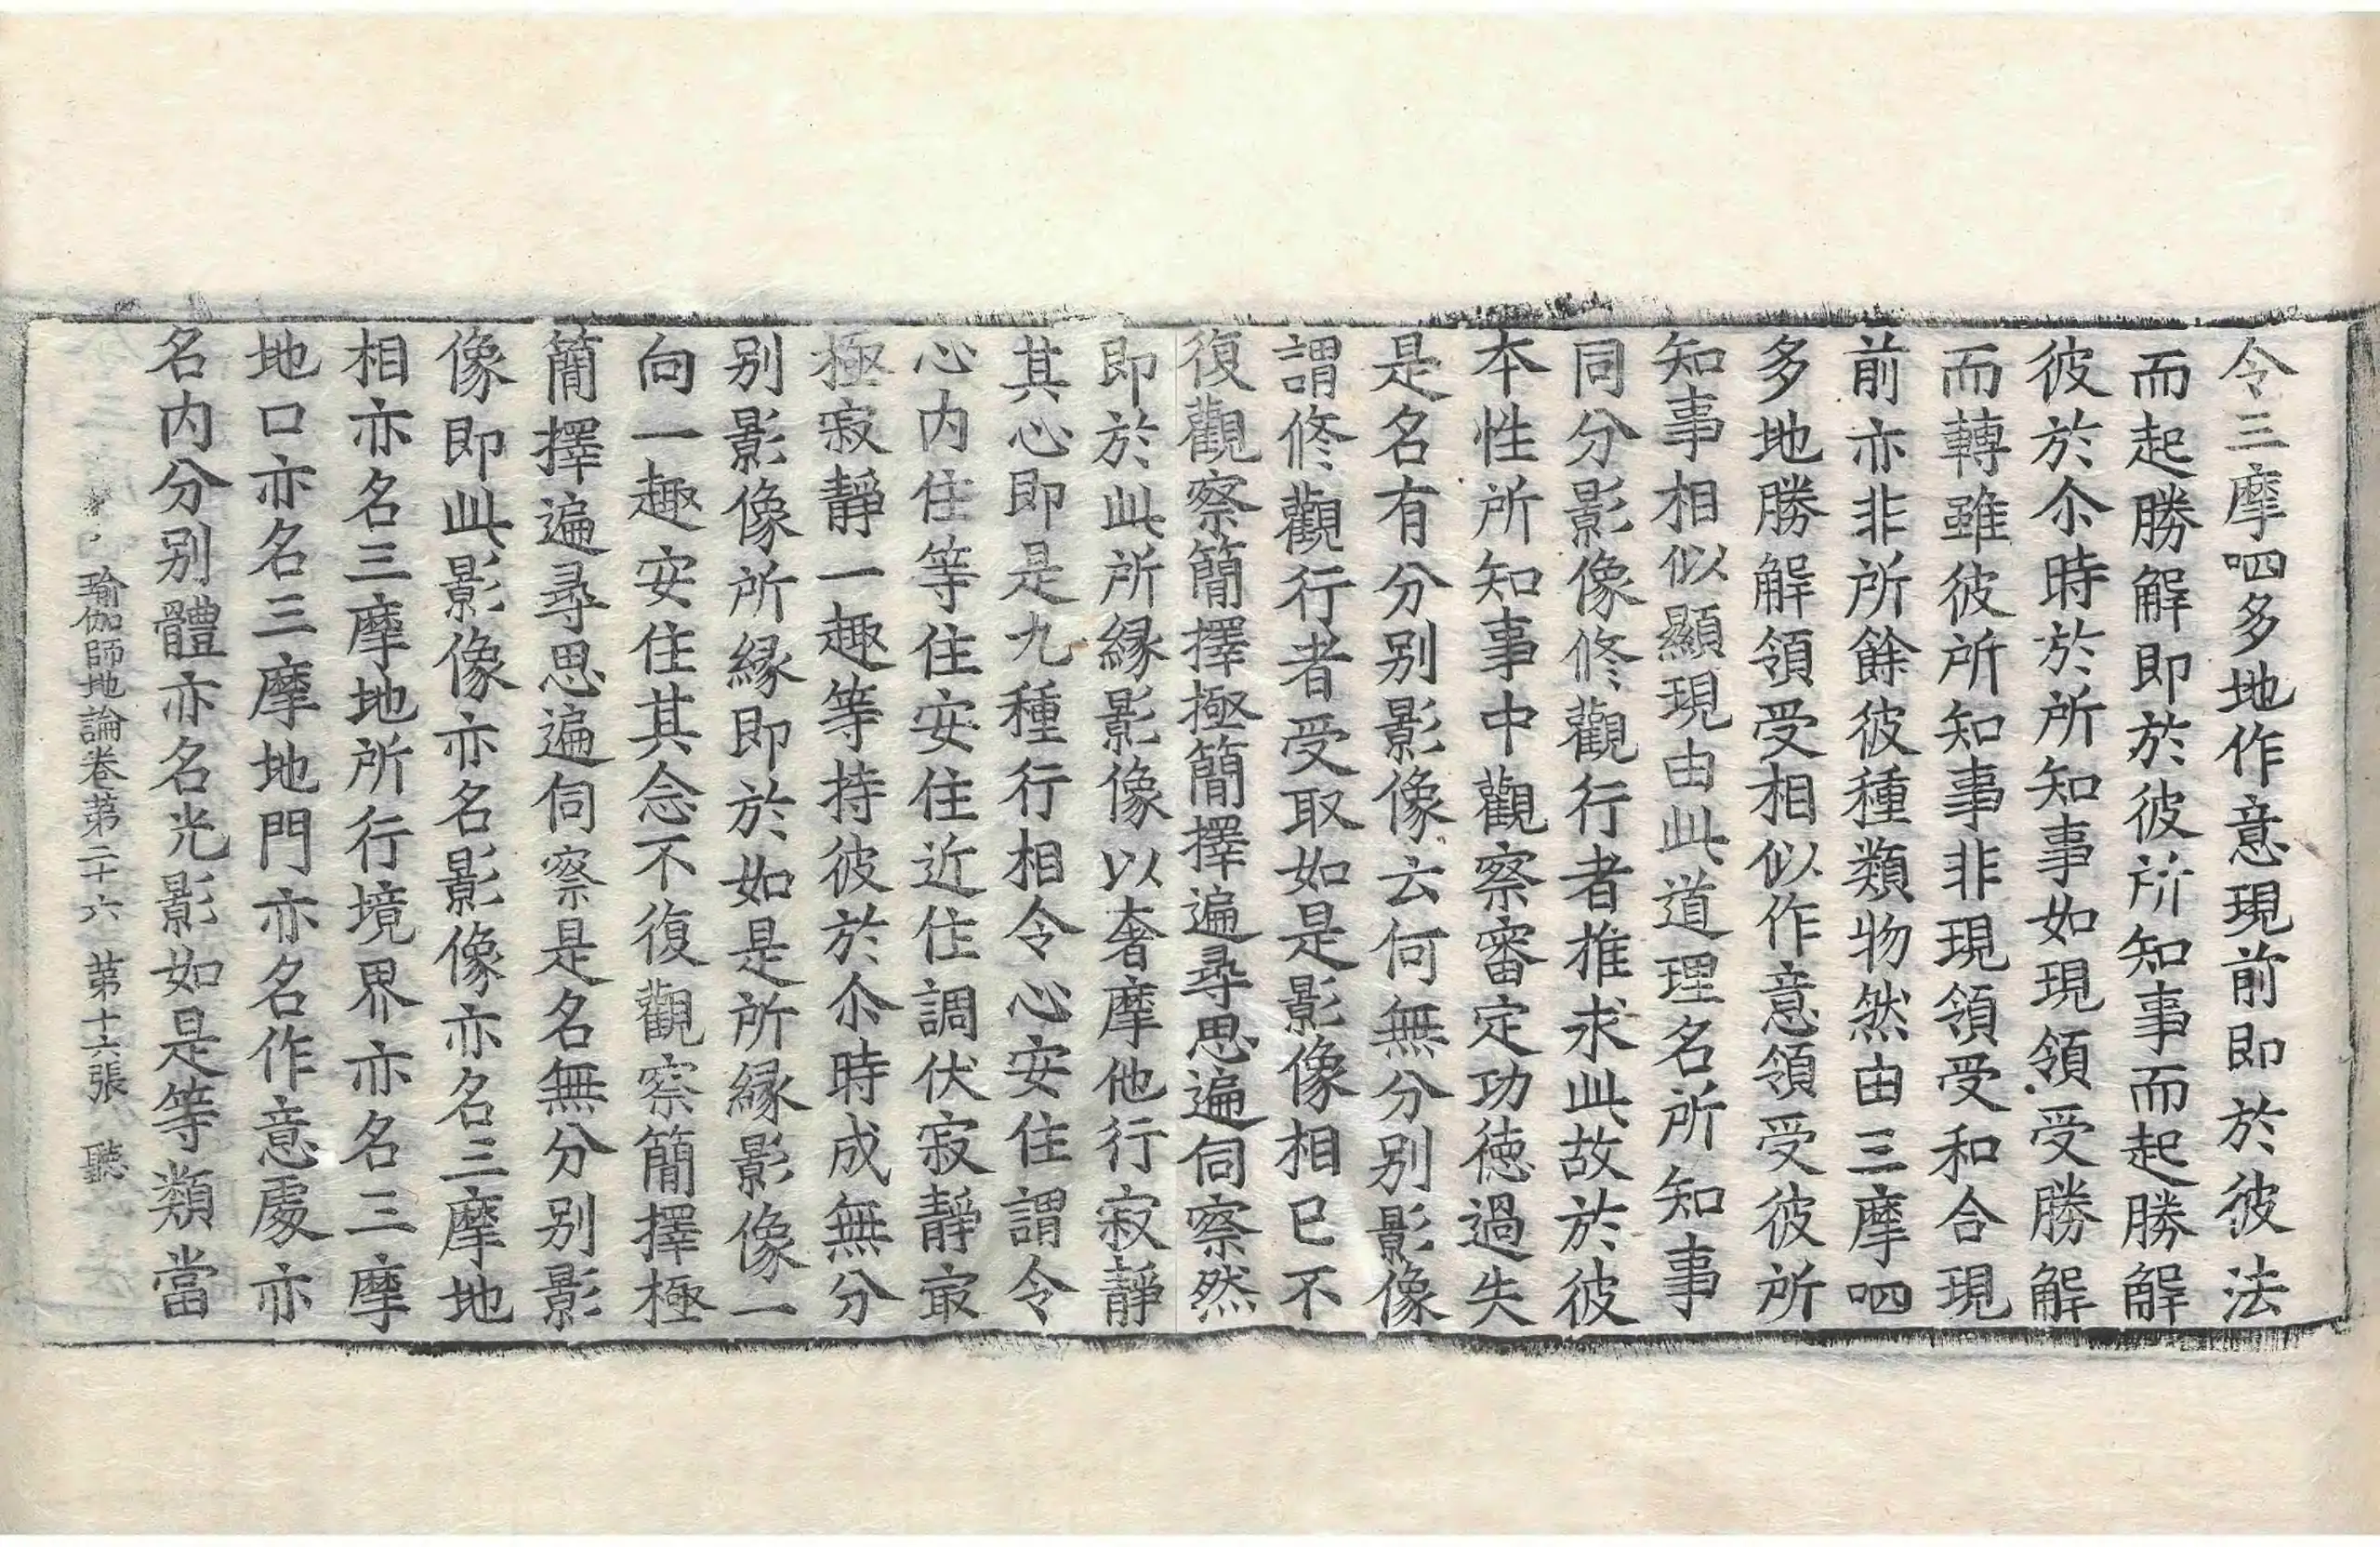 令三摩呬多地作意現前即於彼法
而起勝解即於彼所知事而起勝解
彼於尒時於所知事如現領受勝解
而轉雖彼所知事非現領受和合現
前亦非所餘彼種類物然由三摩呬
多地勝解領受相似作意領受彼所
知事相似顯現由此道理名所知事
同分影像修觀行者推求此故於彼
本性所知事中觀察審定功徳過失
是名有分別影像云何無分別影像
謂修觀行者受取如是影像相已不
復觀察簡擇極簡擇遍尋思遍伺察然
即於此所縁影像以奢摩他行寂靜
其心即是九種行相令心安住謂令
心内住等住安住近住調伏寂靜㝡
極寂靜一趣等持彼於尒時成無分
別影像所縁即於如是所縁影像一
向一趣安住其念不復觀察簡擇極
簡擇遍尋思遍伺察是名無分別影
像即此影像亦名影像亦名三摩地
相亦名三摩地所行境界亦名三摩
地口亦名三摩地門亦名作意處亦
名内分別體亦名光影如是等類當
瑜伽師地論卷第二十六 第十六張 聽